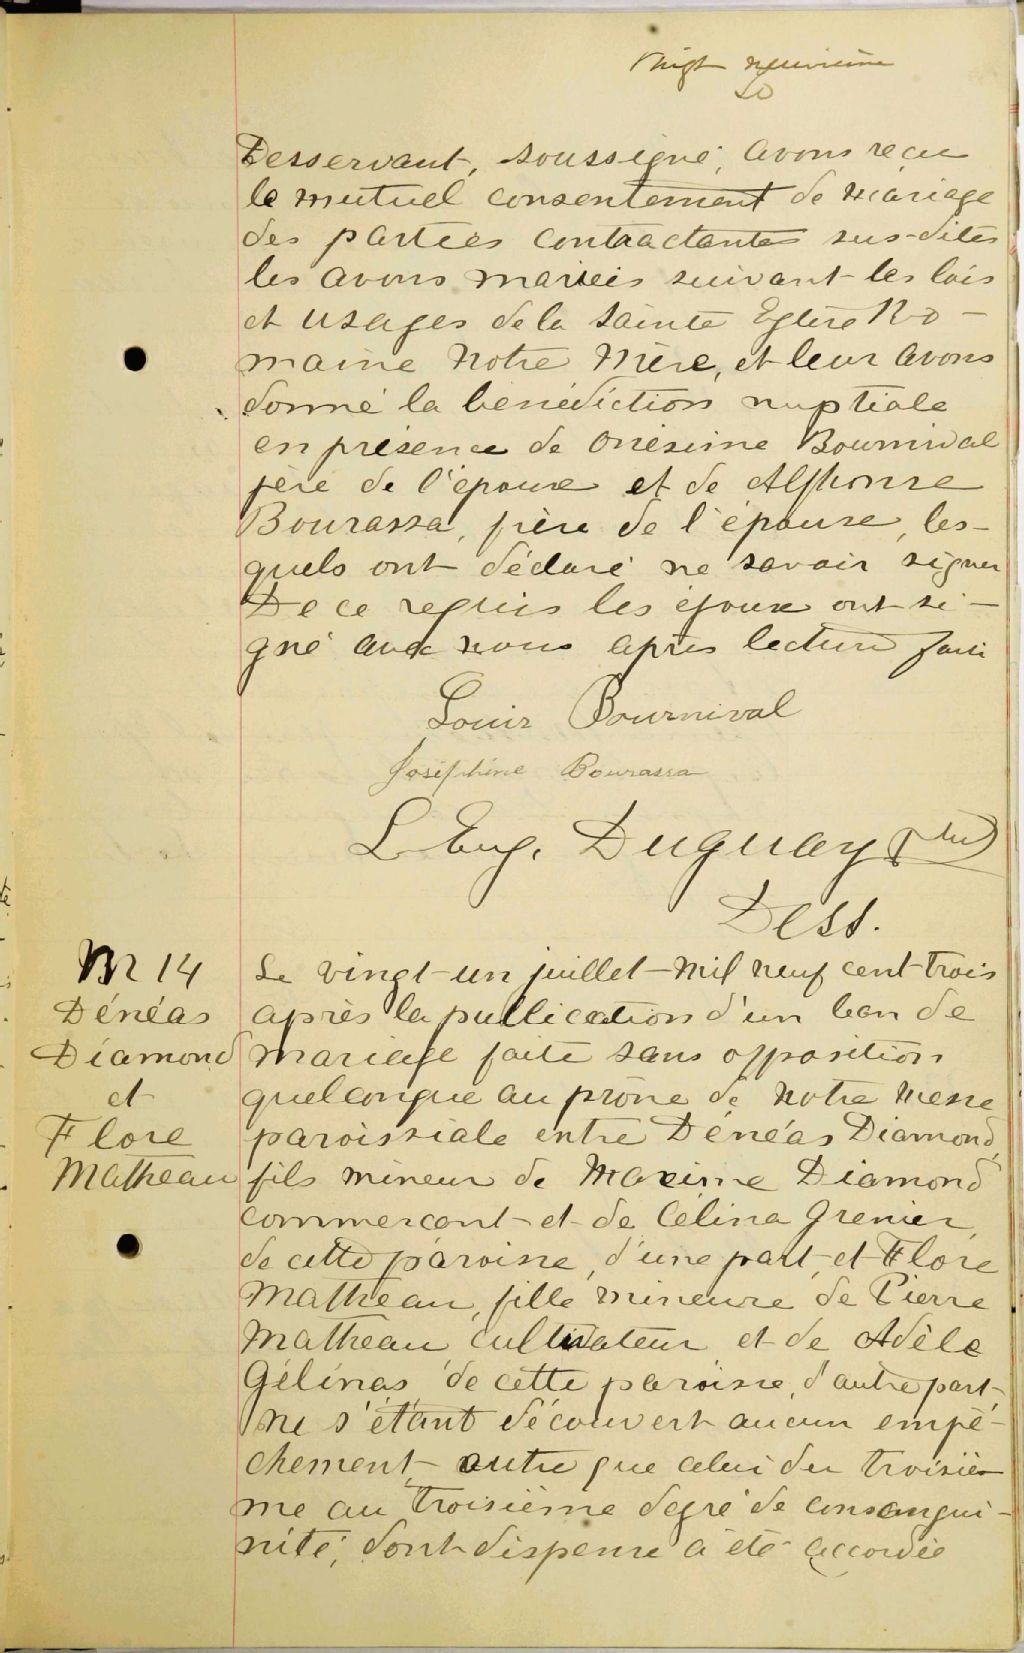 Vingt neuvième
Desservant, soussigné, avons reçu
le mutuel consentement de mariage
des parties contractantes sus-dites
les avons mariés suivant les lois
et usages de la Sainte Eglise Ro-
maine Notre Mère, et leur avons
donné la bénédiction nuptiale
en présence de Onésime Bournival
père de l'époux et de Alphonse
Bourassa, père de l'épouse, les-
quels ont déclaré ne savoir signer
De ce requis les époux ont si-
gné avec nous après lecture faite
Louis Bournival
Joséphine Bourassa
L. Eug. Duguay Ptre
Dess.
M 14
Dénéas
Diamond
et
Flore
Matheau
Le vingt-un juillet mil neuf cent trois
après la publication d'un ban de
mariage faite sans opposition
quelconque au prône de notre messe
paroissiale entre Dénéas Diamond,
fils mineur de Maxime Diamond
commerçant et de Célina Grenier,
de cette paroisse, d'une part, et Flore
Matheau, fille mineure de Pierre
Matheau cultivateur et de Adèle
Gélinas de cette paroisse, d'autre part,
ne s'étant découvert aucun empê-
chement autre que celui du troisiè-
me au troisième degré de consangui-
nité, dont dispense a été accordée